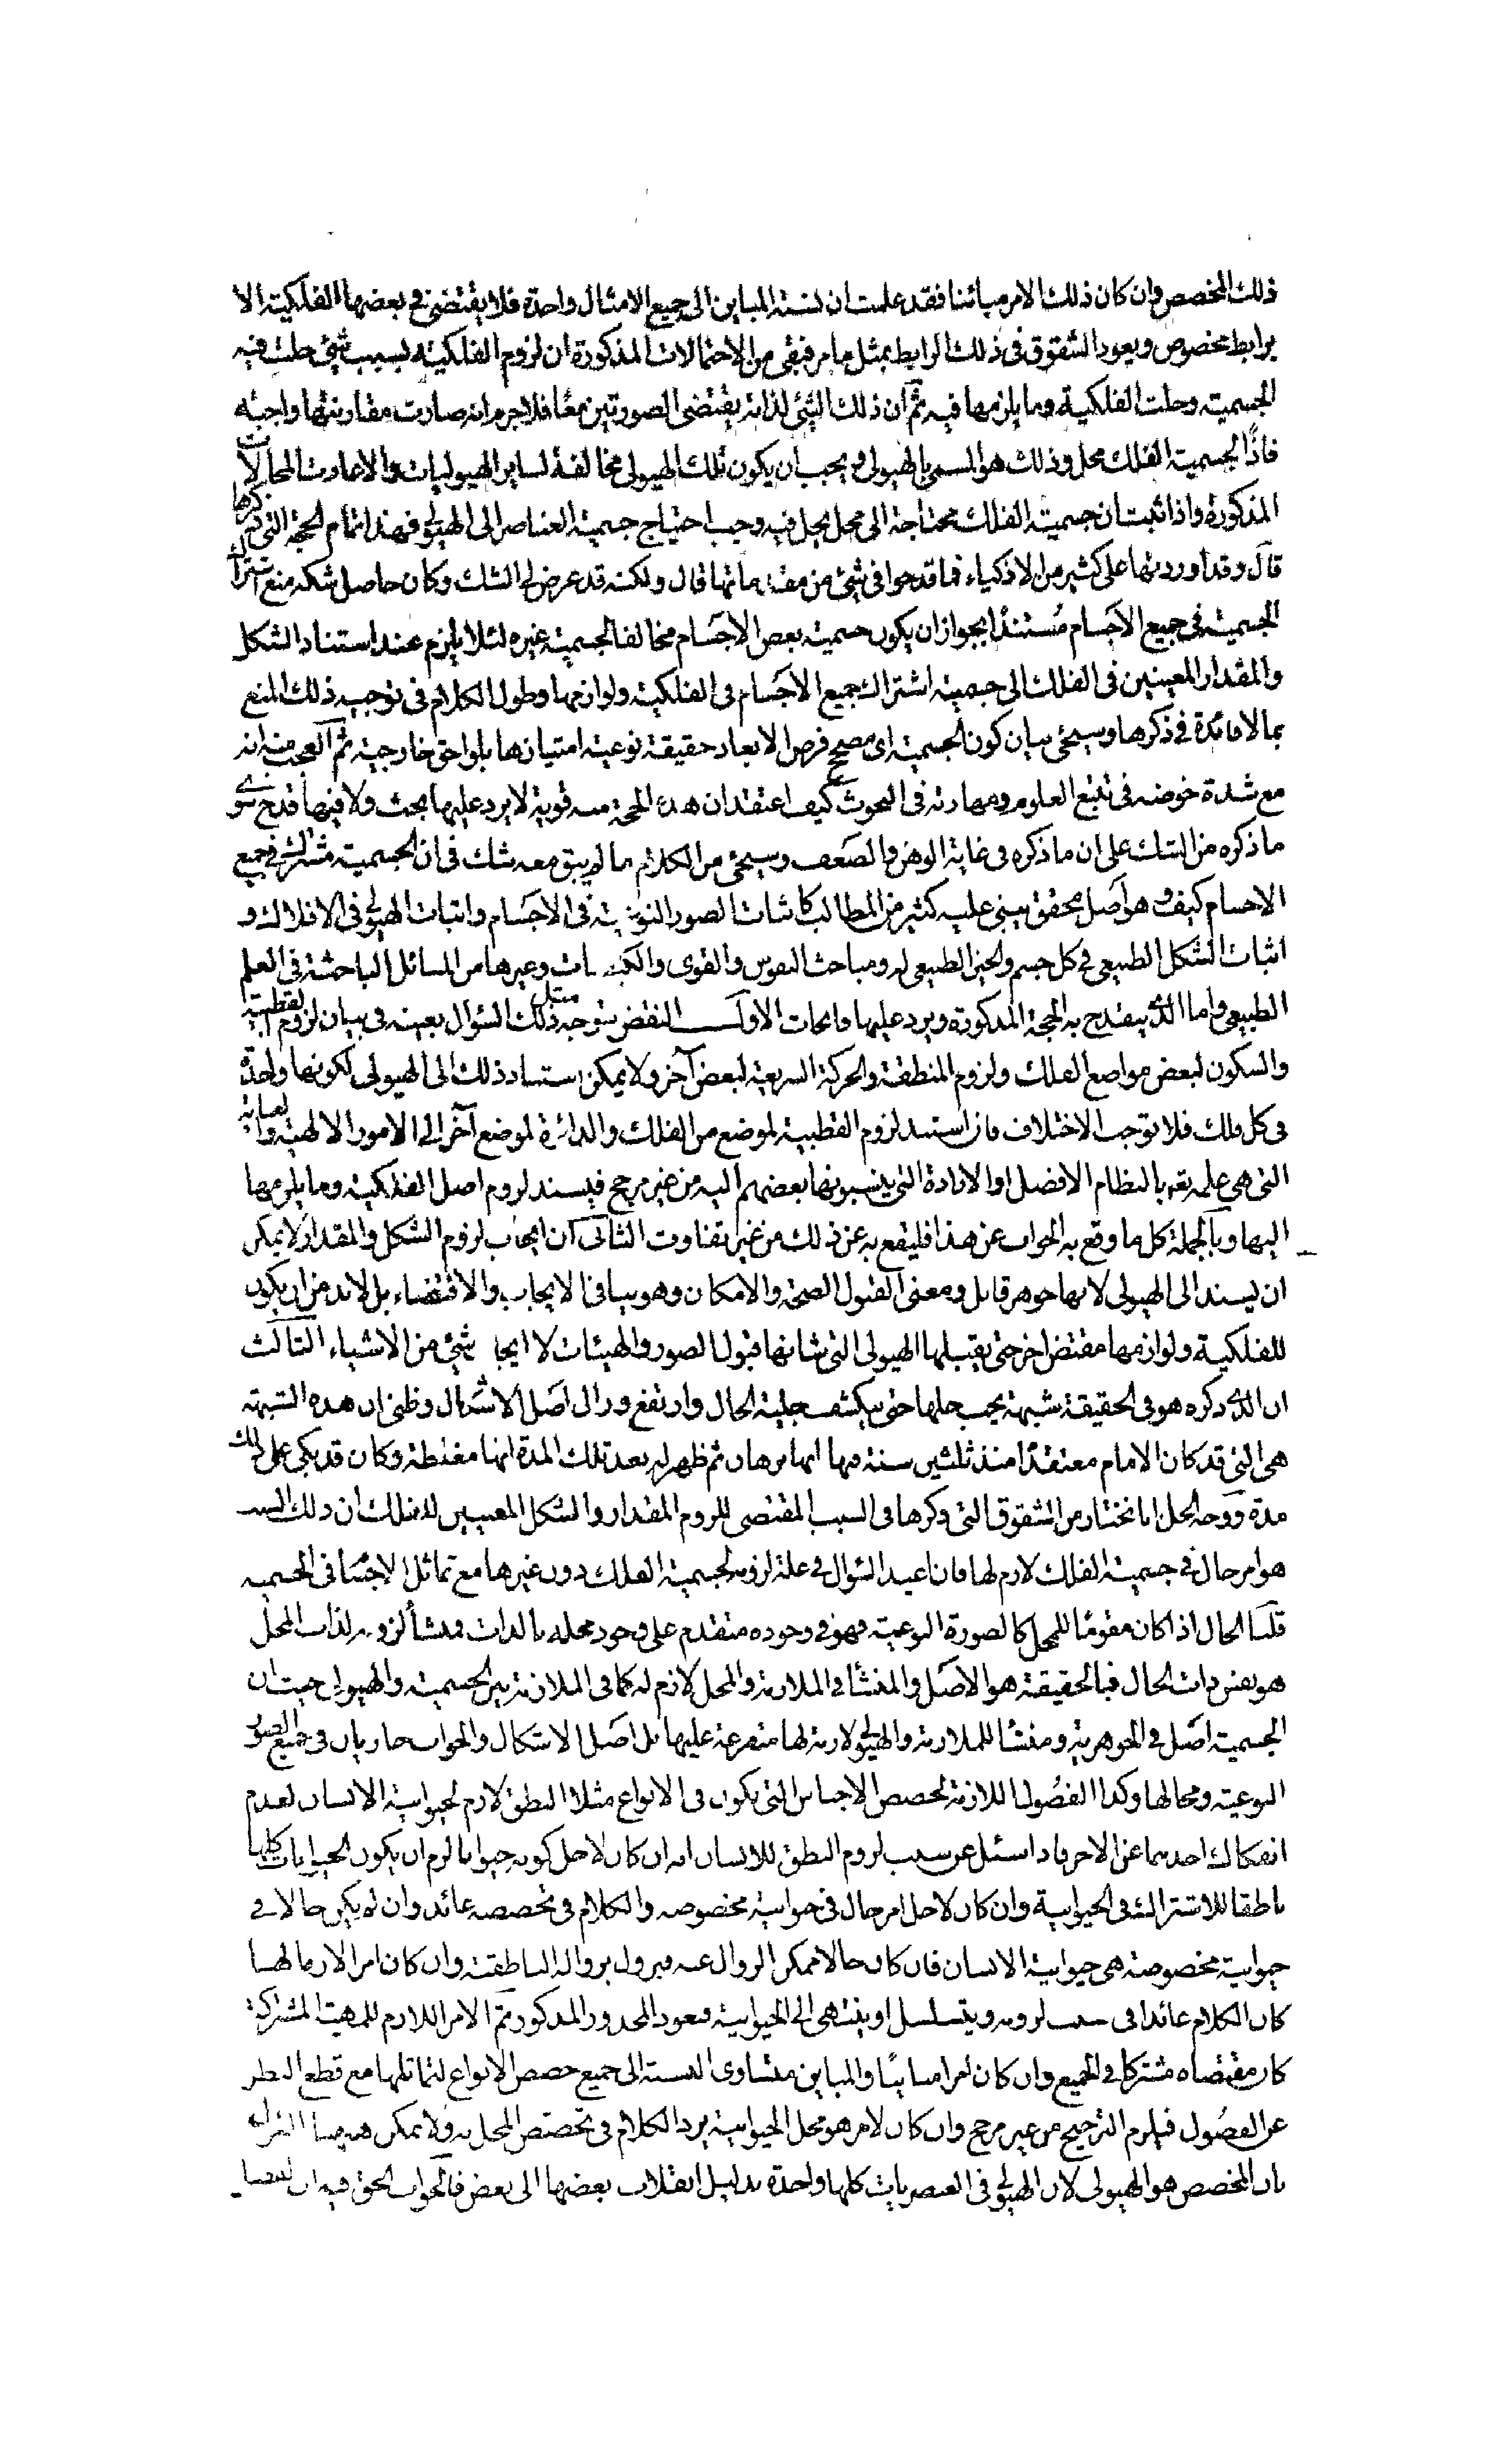 ذلك المخصص وان كان ذلك الامر مبائنا فقد علمت ان نسبة المباين الى جميع الامثال واحدة فلا يقتضى فى بعضها الفلكية الا
برابط مخصوص ويعود الشقوق فى ذلك الرابط بمثل ما مر فبقى من الاحتمالات المذكورة ان لزوم الفلكية بسبب شئ حلت فيه
الجسمية وحلت الفلكية وما يلزمها فيه ثم ان ذلك الشئ لذاته يقتضى الصورتين معًا فلا جرم انه صارت مقارنتها واجبة
فاذًا لجسمية الفلك محل وذلك هو المسمى بالهيولى ويجب ان يكون تلك الهيولى مخالفة لساير الهيوليات والا عادت المحالات
المذكورة واذا ثبت ان جسمية الفلك محتاجة الى محل يحل فيه وجب احتياج جسمية العناصر الى الهيولى فهذا تمام الحجة التى ذكرها
قال وقد اوردتها على كثير من الاذكياء فما قدحوا فى شئ من مقدماتها قال ولكنه قد عرض لى الشك وكان حاصل شكه منع اشتراك
الجسمية فى جميع الاجسام مُستندًا بجواز ان يكون جسمية بعض الاجسام مخالفا لجسمية غيره لئلا يلزم عند استناد الشكل
والمقدار المعينين فى الفلك الى جسميته اشتراك جميع الاجسام فى الفلكية ولوازمها وطول الكلام فى توجيه ذلك المنع
بما لا فائدة فى ذكرها وسيجئ بيان كون الجسمية اى مصحح فرض الابعاد حقيقة نوعية امتيازها بلواحق خارجية ثم العجب منه انه
مع شدة خوضه فى تتبع العلوم ومهارته فى البحوث كيف اعتقد ان هذه الحجة قوية لا يرد عليها بحث ولا فيها قدح سوى
ما ذكره من الشك على ان ما ذكره فى غاية الوهن والضعف وسيجئ من الكلام ما لم يبق معه شك فى ان الجسمية مشترك فى جميع
الاجسام كيف وهو اصل محقق يبنى عليه كثير من المطالب كاثبات الصور النوعية فى الاجسام واثبات الهيولى فى الافلاك و
اثبات الشكل الطبيعى فى كل جسم والحيز الطبيعى له ومباحث النفوس والقوى والكيفيات وغيرها من المسائل الباحثة فى العلم
الطبيعى واما الذى ينقدح به الحجة المذكورة ويرد عليها فابحاث الاول النقض بتوجه مثل ذلك السؤال بعينه فى بيان لزوم القطبية
والسكون لبعض مواضع الفلك ولزوم المنطقة والحركة السريعة لبعض آخر ولا يمكن استناد ذلك الى الهيولى لكونها واحدة
فى كل فلك فلا توجب الاختلاف فان استند لزوم القطبية لموضع من الفلك والدائرة لموضع آخر الى الامور الالهية والعناية
التى هى علمه تعه بالنظام الافضل او الارادة التى ينسبونها بعضهم اليه من غير مرجح فيسند لزوم اصل الفلكية وما يلزمها
اليها وبالجملة كل ما وقع به الجواب عن هذا فليقع به عن ذلك من غير تفاوت الثانى ان ايجاب لزوم الشكل والمقدار لا يمكن
ان يسند الى الهيولى لانها جوهر قابل ومعنى القبول الصحة والامكان وهو ينافى الايجاب والاقتضاء بل لابد من ان يكون
للفلكية ولوازمها مقتض اخر حتى يقبلها الهيولى التى شانها قبول الصور والهيئات لا ايجا شئ من الاشياء الثالث
ان الذى ذكره هو فى الحقيقة شبهة يجب حلها حتى ينكشف جلية الحال وارتفع وزال اصل الاشكال وظنى ان هذه الشبهة
هى التى قد كان الامام معتقدًا منذ ثلثين سنة فيها انها برهان ثم ظهر له بعد تلك المدة انها مغلطة وكان قد يبكى على ذلك
مدة ووجه الحل انا نختار من الشقوق التى ذكرها فى السبب المقتضى للزوم المقدار والشكل المعينين للافلاك ان ذلك السبب
هو امر حال فى جسمية الفلك لازم لها فان اعيد السؤال فى علة لزومه لجسمية الفلك دون غيرها مع تماثل الاجسا فى الجسمية
قلنا الحال اذا كان مقومًا للمحل كالصورة النوعية فهو فى وجوده متقدم على وجود محله بالذات فمنشأ لزومه لذات المحل
هو نفس ذات الحال فبالحقيقة هو الاصل والمنشأ فى الملازمة والمحل لازم له كما فى الملازمة بين الجسمية والهيولى حيث ان
الجسمية اصل فى الجوهرية ومنشا للملازمة والهيولى لازمة لها متفرعة عليها بل اصل الاشكال والجواب جاريان فى جميع الصور
النوعية ومحالها وكذا الفصُول اللازمة لحصص الاجناس التى يكون فى الانواع مثلا النطق لازم لحيوانية الانسان لعدم
انفكاك احدهما عن الاخر فاذا سئل عن سبب لزوم النطق للانسان انه ان كان لاجل كونه حيوانا لزم ان يكون الحيوانات كلها
ناطقا للاشتراك فى الحيوانية وان كان لاجل امر حال فى حيوانية مخصوصة والكلام فى تخصصه عائد وان لم يكن حالا فى
حيوانية مخصوصة هى حيوانية الانسان فان كان حالا ممكن الزوال عنه فيزول بزواله الناطقية وان كان امرا لازما لها
كان الكلام عائدا فى سبب لزومه ويتسلسل او ينتهى الى الحيوانية فعود المحذور المذكور ثم الامر اللازم للمهية المشتركة
كان مقتضاه مشتركا فى الجميع وان كان امرا مباينًا والمباين متساوى النسبة الى جميع حصص الانواع لتماثلها مع قطع النظر
عن الفصُول فيلزم الترجيح من غير مرجح وان كان لامر هو محل الحيوانية يرد الكلام فى تخصص المحل به ولا يمكن ههنا القول
بان المخصص هو الهيولى لان الهيولى فى العنصريات كلها واحدة بدليل انقلاب بعضها الى بعض فالجواب الحق فيه ان